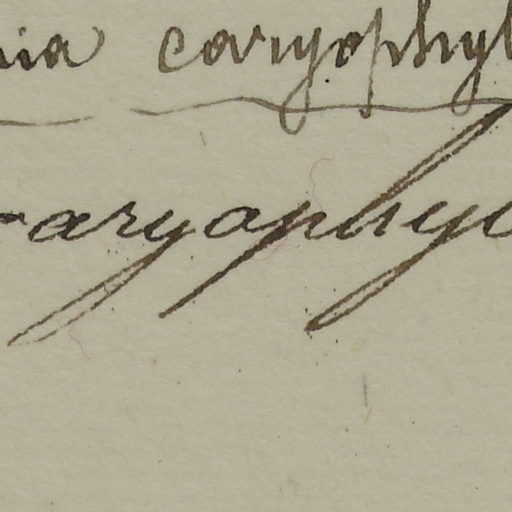 nia caryophyl
aryophyl